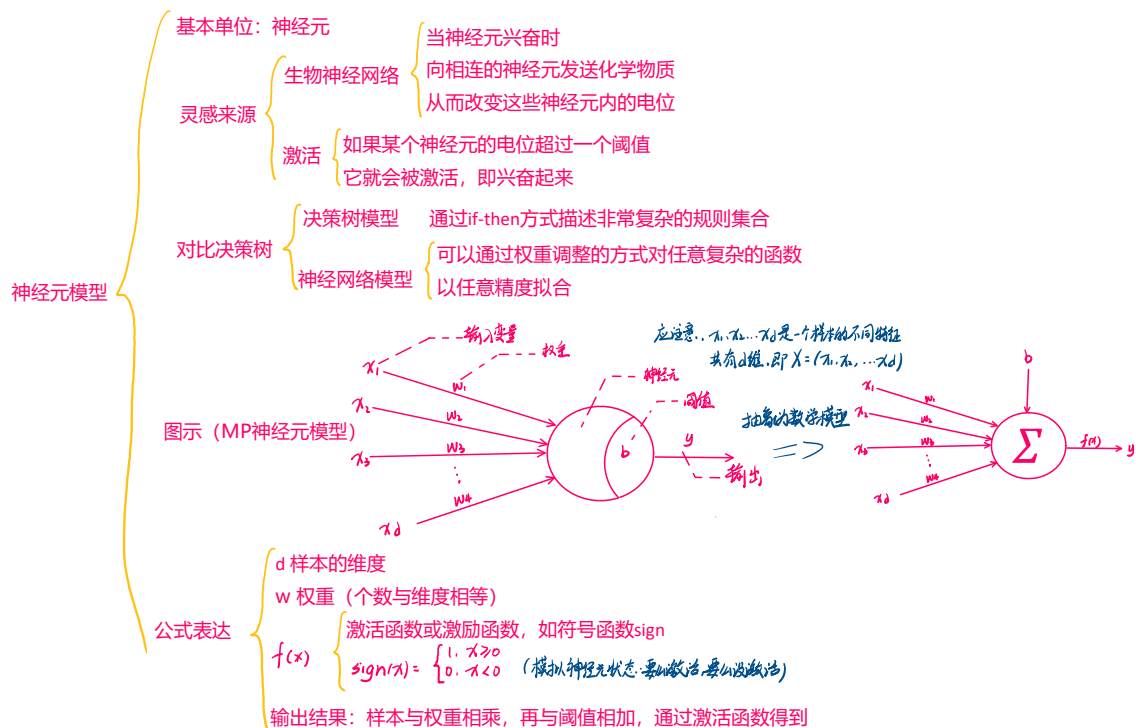 神经元模型
基本单位：神经元
灵感来源
生物神经网络
当神经元兴奋时
向相连的神经元发送化学物质
从而改变这些神经元内的电位
激活
如果某个神经元的电位超过一个阈值
它就会被激活，即兴奋起来
对比决策树
决策树模型
通过if-then方式描述非常复杂的规则集合
神经网络模型
可以通过权重调整的方式对任意复杂的函数
以任意精度拟合
图示（MP神经元模型）
输入变量
权重
神经元
阈值
x₁
x₂
x₃
xd
w₁
w₂
w₃
⋮
w₄
b
y
输出
应注意，x₁,x₂...xd是一个样本的不同特征
共有d维，即X=(x₁,x₂,...xd)
抽象为数学模型
=>
b
x₁
x₂
x₃
xd
w₁
w₂
w₃
⋮
w₄
Σ
f(x)
y
公式表达
d 样本的维度
w 权重（个数与维度相等）
f(x)
激活函数或激励函数，如符号函数sign
sign(x)= { 1, x≥0
0, x<0
（模拟神经元状态:要么激活,要么没激活）
输出结果：样本与权重相乘，再与阈值相加，通过激活函数得到